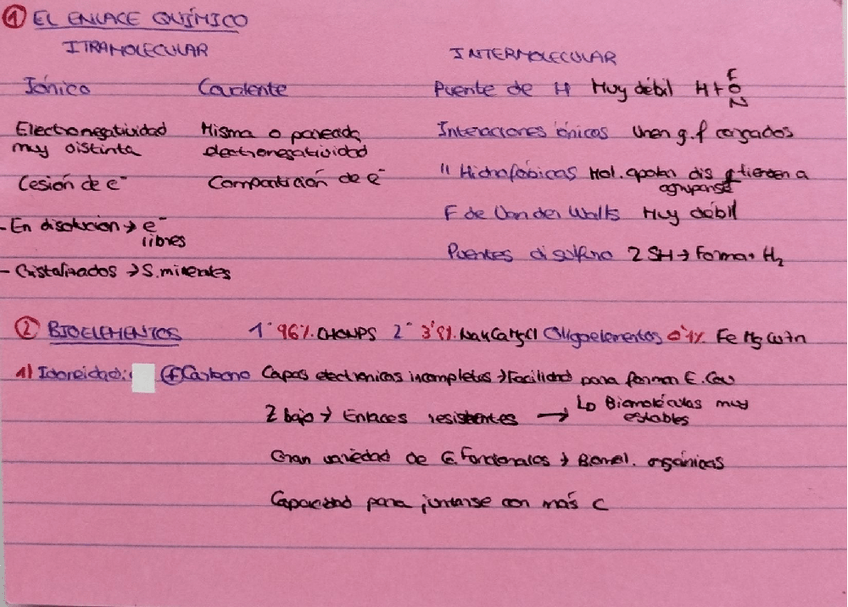 ① EL ENLACE QUÍMICO
ITRAMOLECULAR
INTERMOLECULAR
Iónico Covalente
Puente de H Muy débil H+ F O N
Electronegatividad muy distinta
Misma o parecida electronegatividad
Interaciones iónicas Unen g.f cargados
Cesión de e⁻ Compartición de e⁻
" Hidrofóbicas Mol. apolar dis tienden a
agruparse
- En disolución → e⁻ libres
F de Van der Walls Muy débil
Puentes disulfuro 2 SH → Forma H₂
- Cristalizados → S. minerales
② BIOELEMENTOS 1º 96% CHONPS 2º 3'9% NaKCaMgCl Oligoelementos 0'1%
1) Idoneidad: Carbono Capas electronicas incompletas → Facilidad para formar E. Cov
Z bajo → Enlaces resistentes → Lo Biomoléculas muy
estables
Gran variedad de G. Funcionales → Biomol. orgánicas
Capacidad para juntarse con más C